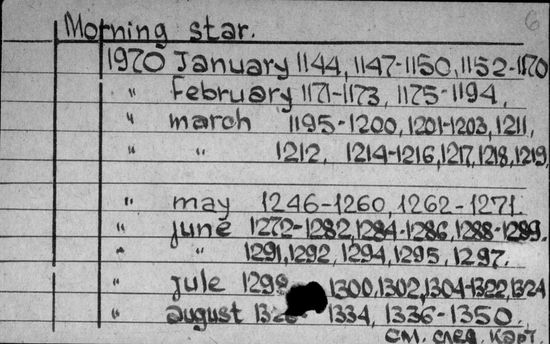 6
Morning star.
1970 January 1144, 1147-1150, 1152-1170
" February 1171-1173, 1175-1194,
" march 1195-1200, 1201-1203, 1211,
" " 1212, 1214-1216, 1217, 1218, 1219,
" may 1246-1260, 1262-1271.
" june 1272-1282, 1284-1286, 1288-1289.
" " 1291, 1292, 1294, 1295, 1297.
" jule 1300, 1302, 1304-1322, 1324
" august 1334, 1336-1350.
см. след. карт.